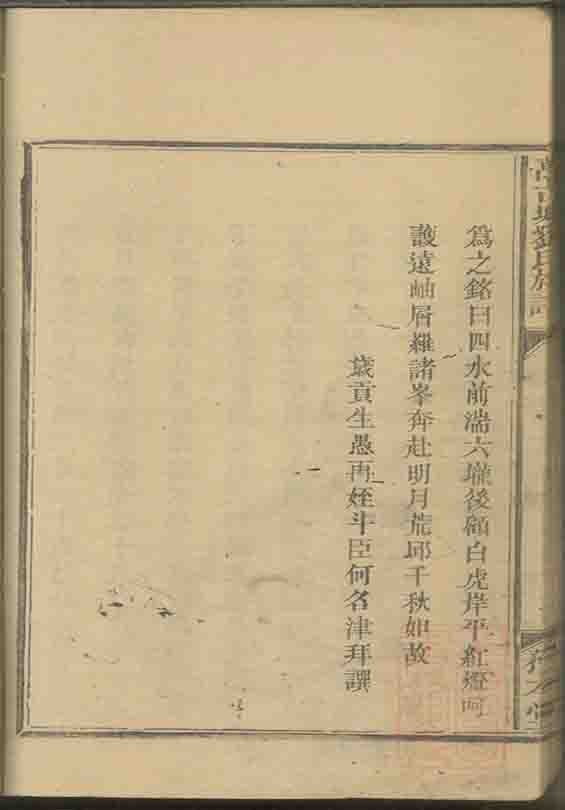 劉氏族譜
為之銘曰四水前湍六壠後顧白虎岸平紅燈呵
護遠岫層羅諸峯奔赴明月荒邱千秋如故
歲貢生愚再姪斗臣何名津拜譔